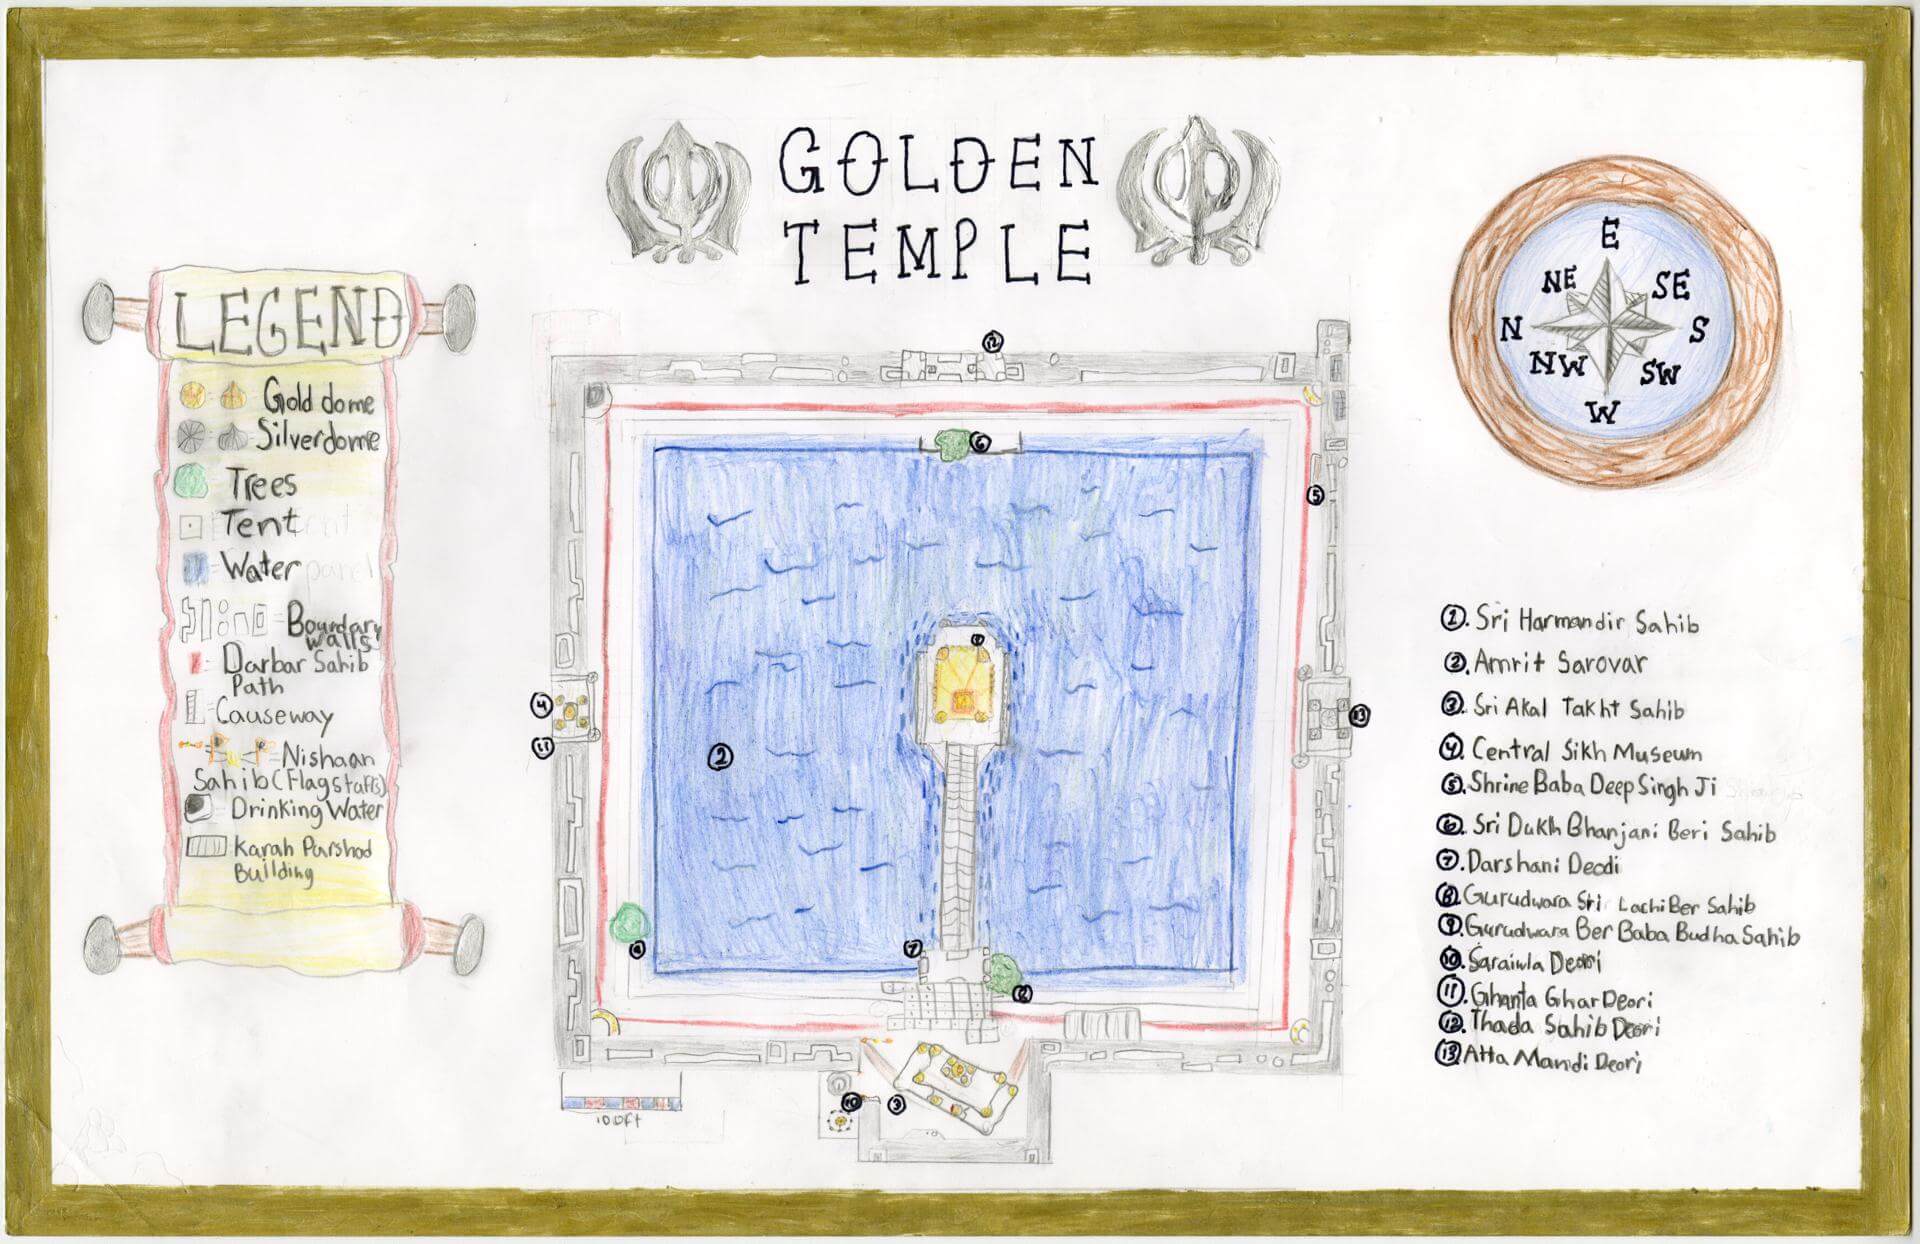 GOLDEN
TEMPLE
LEGEND
Gold dome
Silverdome
Trees
Tent
Water
Boundary
walls
Darbar Sahib
Path
Causeway
Nishaan
Sahib (Flagstaffs)
Drinking Water
Karah Parshad
Building
E
NE SE
N S
NW SW
W
12
6
5
4
11
13
2
7
10
3
100ft
①. Sri Harmandir Sahib
②. Amrit Sarovar
③. Sri Akal Takht Sahib
④. Central Sikh Museum
⑤. Shrine Baba Deep Singh Ji
⑥. Sri Dukh Bhanjani Beri Sahib
⑦. Darshani Deodi
⑧. Gurudwara Sri Lachi Ber Sahib
⑨. Gurudwara Ber Baba Budha Sahib
⑩. Saraiwla Deori
⑪. Ghanta Ghar Deori
⑫. Thada Sahib Deori
⑬ Atta Mandi Deori